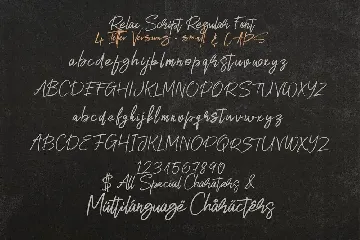 Relac Script Regular Font
4 Leter Versing - small & CAPS
abcdefghijklmnopqrstuvwxyz
ABCDEFFGHIJKLMNOPQRSTUVWXYZ
abcdefghijklmnopqrstuvwxyz
ABCDEFGHIJKLMNOPQRSTUVWXYZ
1234567890
$ All Special Charaters &
Multilanguage Characters